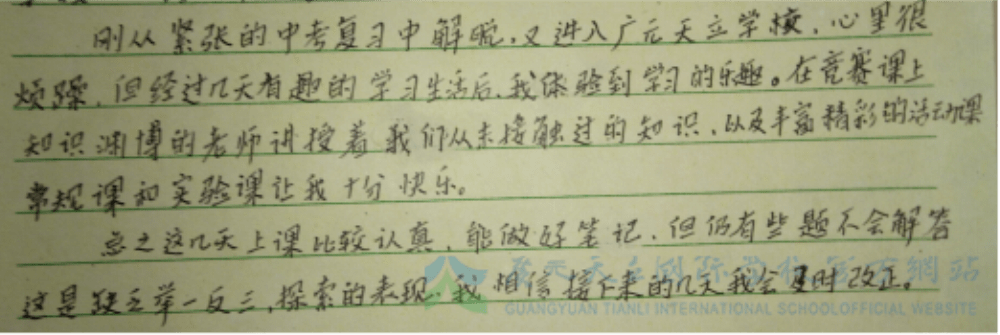 刚从紧张的中考复习中解脱，又进入广元天立学校，心里很
烦躁，但经过几天有趣的学习生活后，我体验到学习的乐趣。在竞赛课上
知识渊博的老师讲授着我们从未接触过的知识，以及丰富精彩的活动课
常规课和实验课让我十分快乐。
总之这几天上课比较认真，能做好笔记，但仍有些题不会解答
这是缺乏举一反三，探索的表现，我相信接下来的几天我会及时改正。
广元天立国际学校官方網站
GUANGYUAN TIANLI INTERNATIONAL SCHOOLOFFICIAL WEBSITE